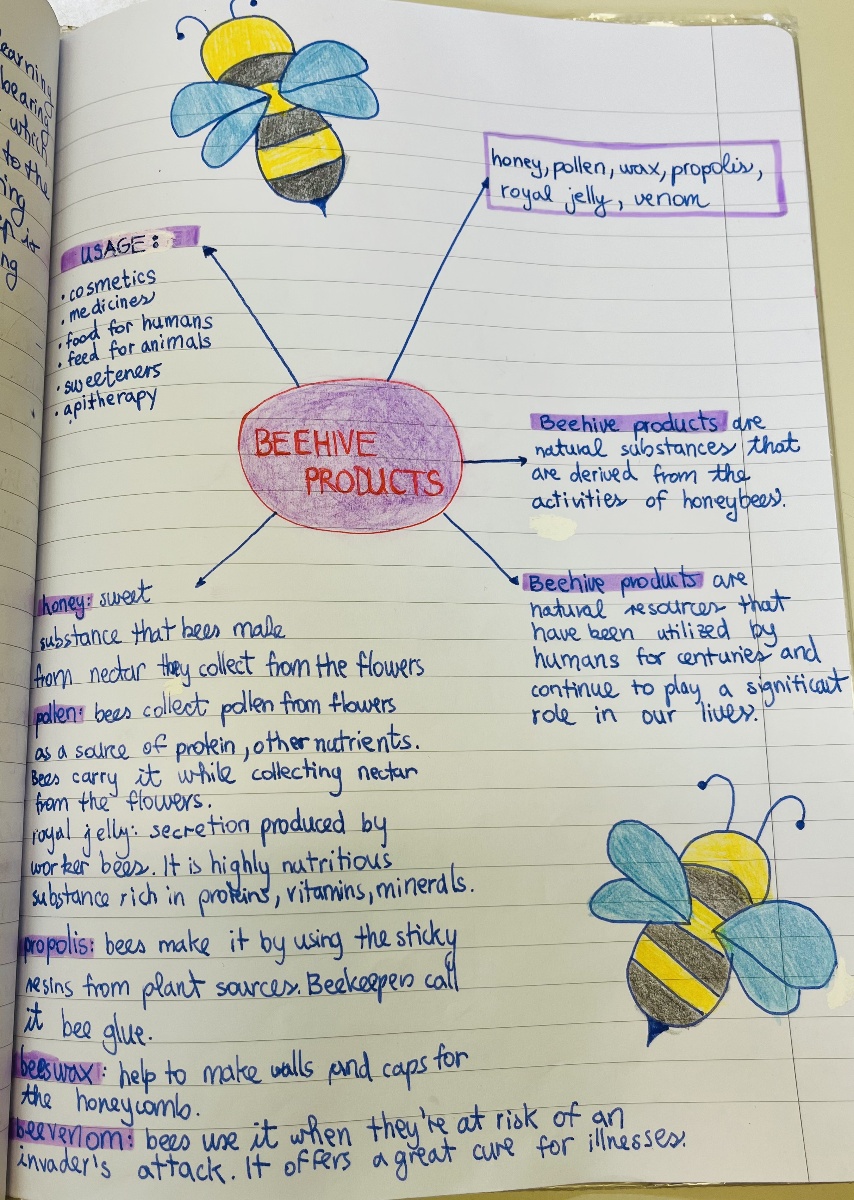 earning
bearing
which
to the
ing
ng
honey, pollen, wax, propolis,
royal jelly, venom
USAGE:
• cosmetics
• medicines
• food for humans
• feed for animals
• sweeteners
• apitherapy
BEEHIVE
PRODUCTS
Beehive products are
natural substances that
are derived from the
activities of honeybees.
Beehive products are
natural resources that
have been utilized by
humans for centuries and
continue to play a significant
role in our lives.
honey: sweet
substance that bees make
from nectar they collect from the flowers
pollen: bees collect pollen from flowers
as a source of protein, other nutrients.
Bees carry it while collecting nectar
from the flowers.
royal jelly: secretion produced by
worker bees. It is highly nutritious
substance rich in proteins, vitamins, minerals.
propolis: bees make it by using the sticky
resins from plant sources. Beekeepers call
it bee glue.
beeswax: help to make walls and caps for
the honeycomb.
beevenom: bees use it when they're at risk of an
invader's attack. It offers a great cure for illnesses.